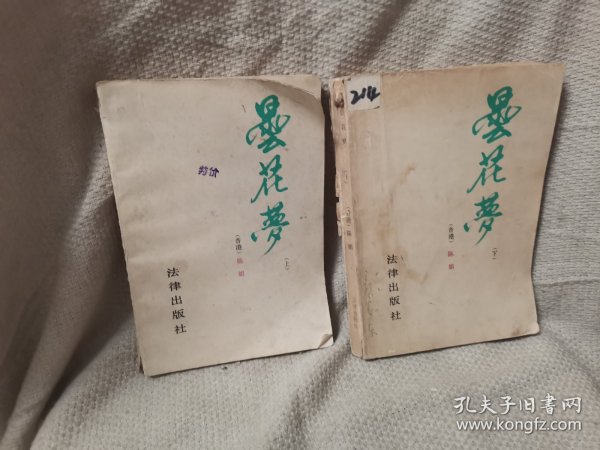 曇花夢
(上)
(香港)陈娟
特价
法律出版社
214
曇花夢
(下)
(香港)陈娟
法律出版社
孔夫子旧书网
www.kongfz.com